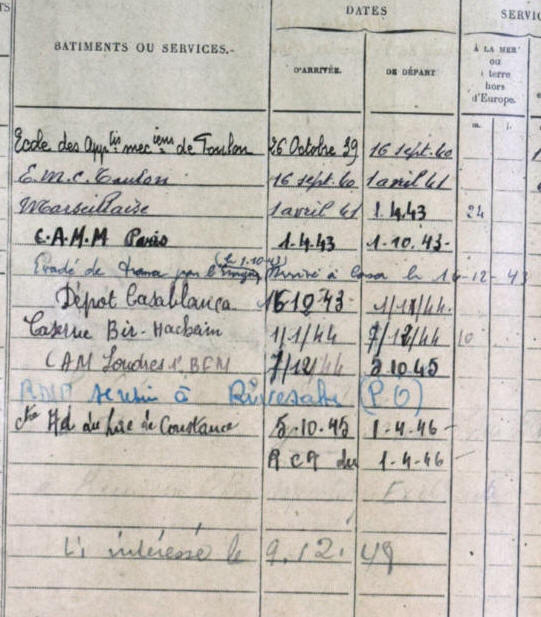 DATES
SERVIC
BATIMENTS OU SERVICES.-
D'ARRIVÉE.
DE DÉPART
À LA MER
ou
à terre
hors
d'Europe.
m. j.
Ecole des App.tis mec.iens de Toulon 26 Octobre 39 16 sept. 40
E.M.C. Toulon 16 sept. 40 1 avril 41
Marseillaise 1 avril 41 1.4.43 24
C.A.M.M Paris 1.4.43 1-10.43-
(le 1.10.43)
Evadé de france par l'Espagne Arrivé à Casa le 14-12-43
Dépot Casablanca 15 12 43- 1/1/44.
Caserne Bir-Hacheim 1/1/44 7/12/44 10
CAM Londres 1er BFM 7/12/44 5 10 45
RMP à Rivesaltes (P.O)
Hd du Lac de Constance 5-10-45 1-4-46-
RCA du 1-4-46
L'intéressé le 9.12.49